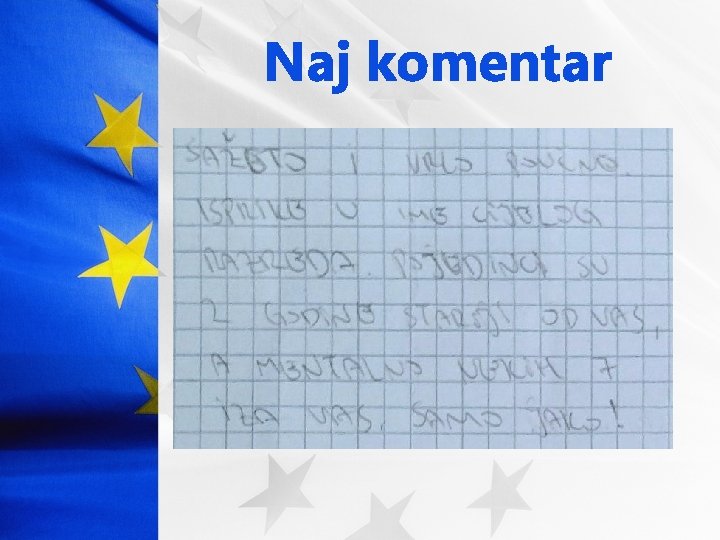 Naj komentar
SAŽETO I VRLO POUČNO.
ISPRIKE U IME CIJELOG
RAZREDA. POJEDINCI SU
2 GODINE STARIJI OD VAS,
A MENTALNO NEKIH 7
IZA VAS. SAMO JAKO!